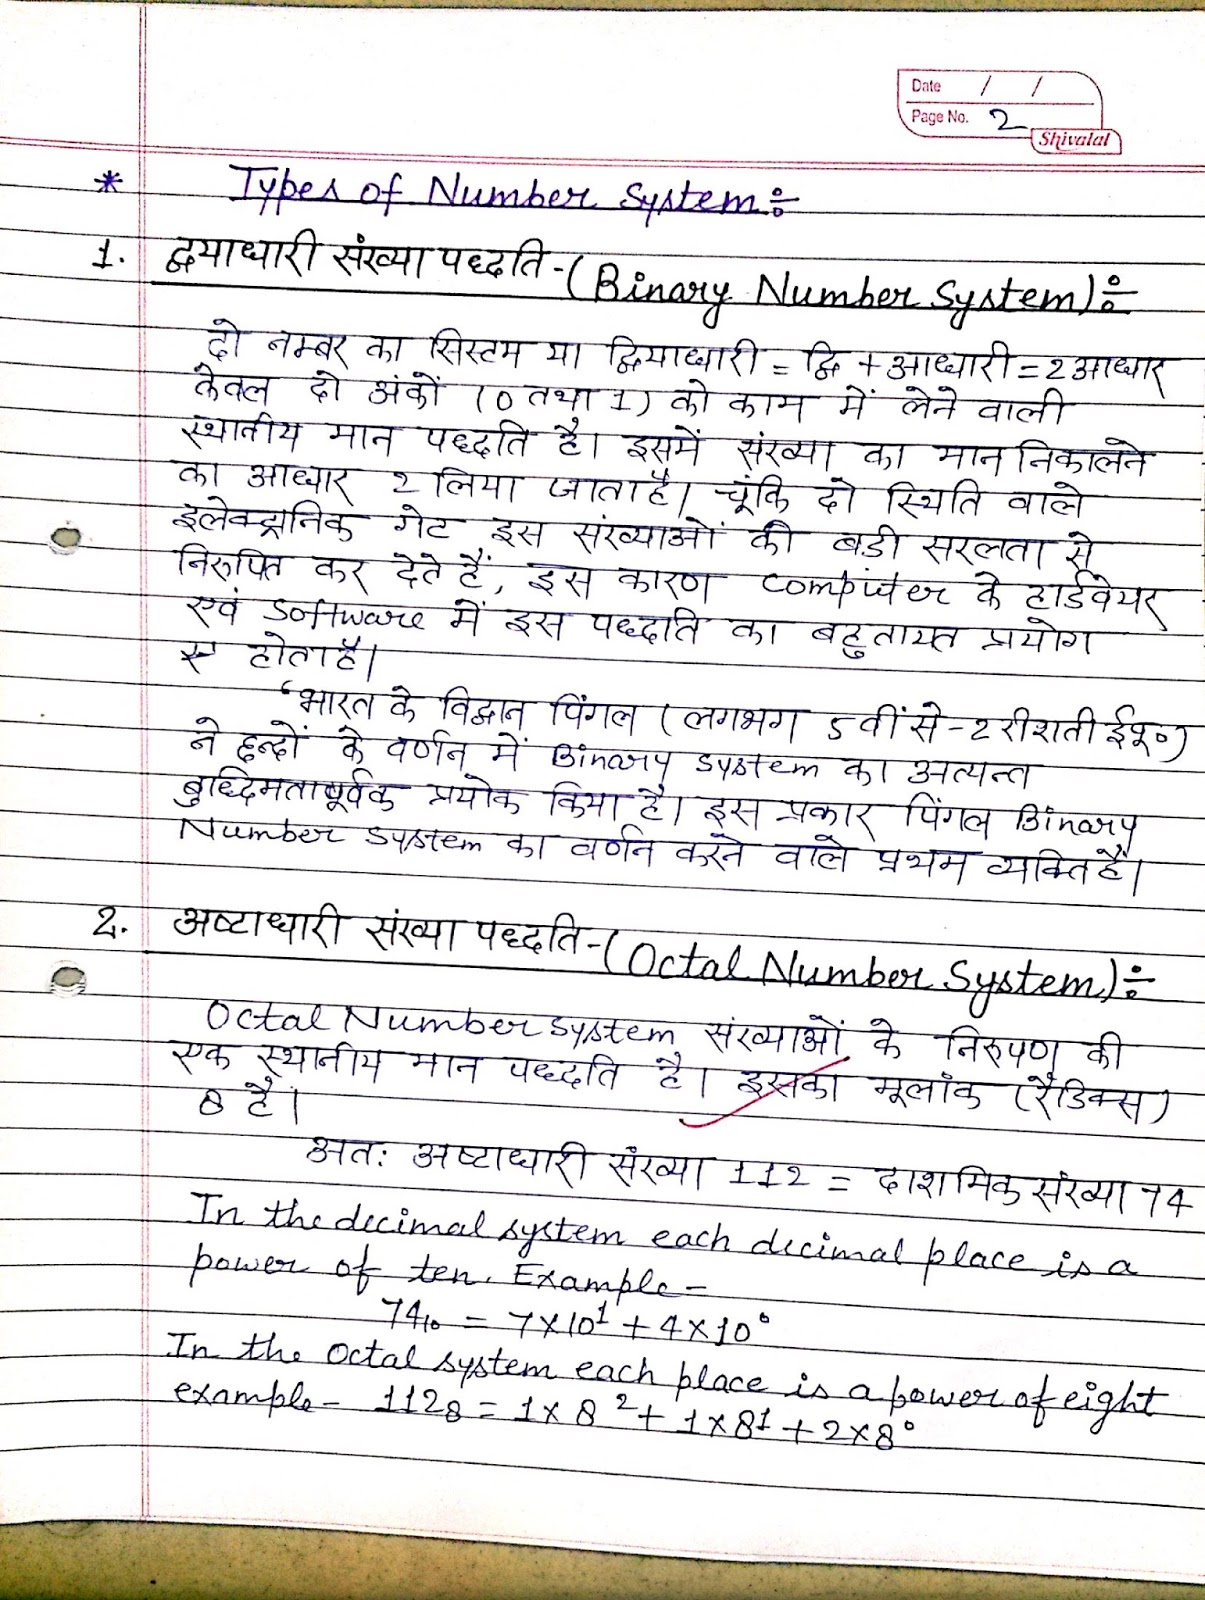 Date / /
Page No. 2
Shivalal
* Types of Number System÷
1. द्वयाधारी संख्या पध्दति-(Binary Number System)÷
दो नम्बर का सिस्टम या द्वियाधारी = द्वि + आधारी = 2 आधार
केवल दो अंकों (0 तथा 1) को काम में लेने वाली
स्थानीय मान पध्दति है। इसमें संख्या का मान निकालने
का आधार 2 लिया जाता है। चूंकि दो स्थिति वाले
इलेक्ट्रानिक गेट इस संख्याओं की बड़ी सरलता से
निरुपित कर देते हैं, इस कारण computer के हार्डवेयर
एवं Software में इस पध्दति का बहुतायत प्रयोग
से होता है।
'भारत के विद्वान पिंगल (लगभग 5 वीं से - 2 री शती ई॰पू॰)
ने छन्दों के वर्णन में Binary system का अत्यन्त
बुध्दिमतापूर्वक प्रयोक किया है। इस प्रकार पिंगल Binary
Number system का वर्णन करने वाले प्रथम व्यक्ति है।
2. अष्टाधारी संख्या पध्दति-(Octal Number System)÷
Octal Number system संख्याओं के निरुपण की
एक स्थानीय मान पध्दति है। इसका मूलांक (रैडिक्स)
8 है।
अतः अष्टाधारी संख्या 112 = दाशमिक संख्या 74
In the decimal system each decimal place is a
power of ten. Example-
74₁₀ = 7×10¹ + 4×10⁰
In the octal system each place is a power of eight
example- 112₈ = 1×8² + 1×8¹ + 2×8⁰